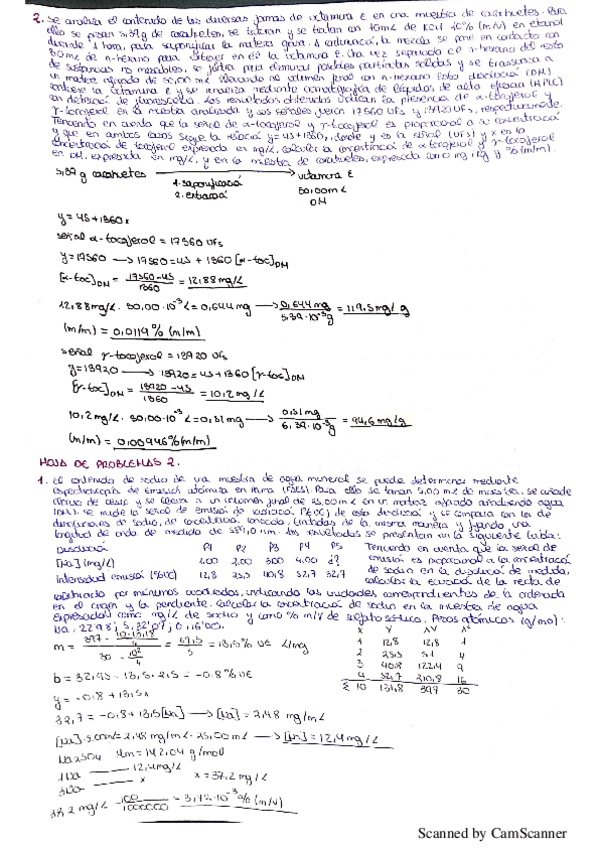 2. Se analiza el contenido de las diversas formas de vitamina E en una muestra de cacahuetes. Para
ello se pesan 5,39g de cacahuetes, se trituran y se tratan con 10mL de KOH 10% (m/v) en etanol
durante 1 hora, para saponificar la materia grasa. A continuación, la mezcla se pone en contacto con
50mL de n-hexano para extraer en él la vitamina E. Una vez separado el n-hexano del resto
de sustancias no miscibles, se filtra para eliminar posibles partículas sólidas y se transvasa a
un matraz aforado de 50,00 mL llevando al volumen final con n-hexano. Esta disolución (DM)
contiene la vitamina E y se analiza mediante cromatografía de líquidos de alta eficacia (HPLC)
con detección de fluorescencia. Los resultados obtenidos indican la presencia de α-tocoferol y
γ-tocoferol en la muestra analizada y sus señales fueron 17560 UFs y 13920 UFs, respectivamente.
Teniendo en cuenta que la señal de α-tocoferol y γ-tocoferol es proporcional a su concentración
y que en ambos casos sigue la relación y=45+1360x, donde y es la señal (UFs) y x es la
concentración de tocoferol expresada en mg/L, calcular la concentración de α-tocoferol y γ-tocoferol
en DM, expresada en mg/L, y en la muestra de cacahuetes, expresada como mg/kg y %(m/m).
5,39g cacahuetes → vitamina E
1. saponificació
2. extracció
50,00mL
DM
y=45+1360x
señal α-tocoferol = 17560 UFs
y=17560 → 17560=45+1360[α-toc]DM
[α-toc]DM = 17560-45 / 1360 = 12,88mg/L
12,88mg/L · 50,00·10⁻³L=0,644mg → 0,644mg / 5,39·10⁻³g = 119,5mg/g
(m/m) = 0,0119% (m/m)
señal γ-tocoferol = 13920 UFs
y=13920 → 13920=45+1360[γ-toc]DM
[γ-toc]DM = 13920-45 / 1360 = 10,2mg/L
10,2mg/L · 50,00·10⁻³L=0,51mg → 0,51mg / 5,39·10⁻³g = 94,6mg/g
(m/m) = 0,00946%(m/m)
HOJA DE PROBLEMAS 2.
1. El contenido de sodio de una muestra de agua mineral se puede determinar mediante
espectroscopía de emisión atómica en llama (FAES). Para ello se toman 5,00 mL de muestra, se añade
y se lleva a un volumen final de 25,00mL en un matraz aforado añadiendo agua
se mide la señal de emisión de radiación (%UE) de esta disolución y se compara con la de
disoluciones de sodio, de concentración conocida, tratadas de la misma manera y fijando una
longitud de onda de medida de 589,0 nm. Los resultados se presentan en la siguiente tabla:
Disolución P1 P2 P3 P4 P5 Teniendo en cuenta que la señal de
[Na] (mg/L) 1.00 2.00 3.00 4.00 ¿? emisión es proporcional a la concentració
Intensidad emisión (%UE) 12,8 25,5 40,8 52,7 32,7 de sodio en la disolución de medida,
calcular la ecuación de la recta de
calibrado por mínimos cuadrados, indicando las unidades correspondientes de la ordenada
en el origen y la pendiente. Calcular la concentración de sodio en la muestra de agua
expresada como mg/L de sodio y como % m/v de sulfato sódico. Pesos atómicos (g/mol):
Na, 22,98; S, 32,07; O, 16,00.
m = 397 - 10·131,8/4 / 30 - 10²/4 = 67,5 / 5 = 13,5 % UE L/mg
X Y XY X²
1 12,8 12,8 1
2 25,5 51 4
3 40,8 122,4 9
4 52,7 210,8 16
Σ 10 131,8 397 30
b = 32,95 - 13,5 · 2,5 = -0,8 % UE
y = -0,8 + 13,5x
32,7 = -0,8+13,5[Na] → [Na] = 2,48 mg/mL
[Na]·5,00mL=2,48 mg/mL · 25,00mL → [Na] = 12,4mg/L
Na2SO4 Mm=142,04 g/mol
12,4mg/L
x x=37,2mg/L
37,2 mg/L · 100/1000000 = 3,72·10⁻³%(m/v)
Scanned by CamScanner